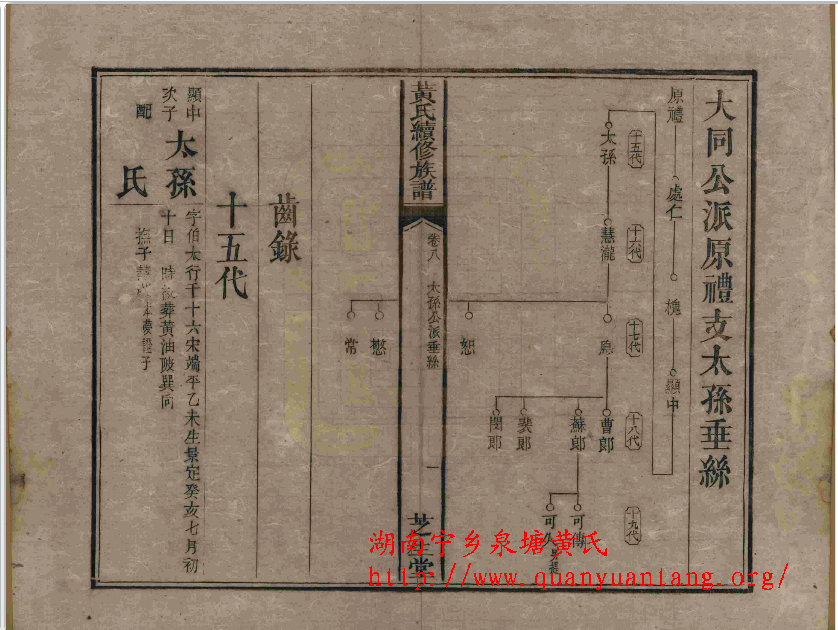 大同公派原禮支太孫垂絲
原禮
處仁
槐
顯中
十五代
太孫
十六代
慧瀧
十七代
原
恕
憗
常
十八代
曹郎
蘇郎
裴郎
閏郎
十九代
可傳
可久
黃氏續修族譜
卷八
太孫公派垂絲
一
芝 堂
齒錄
十五代
顯中
次子
太孫
字伯太行千十六宋端平乙未生景定癸亥七月初
十日 時 葬黃油陂巽向
配
氏
撫子 夢 子
湖南宁乡泉塘黄氏
http://www.quanyuantang.org/